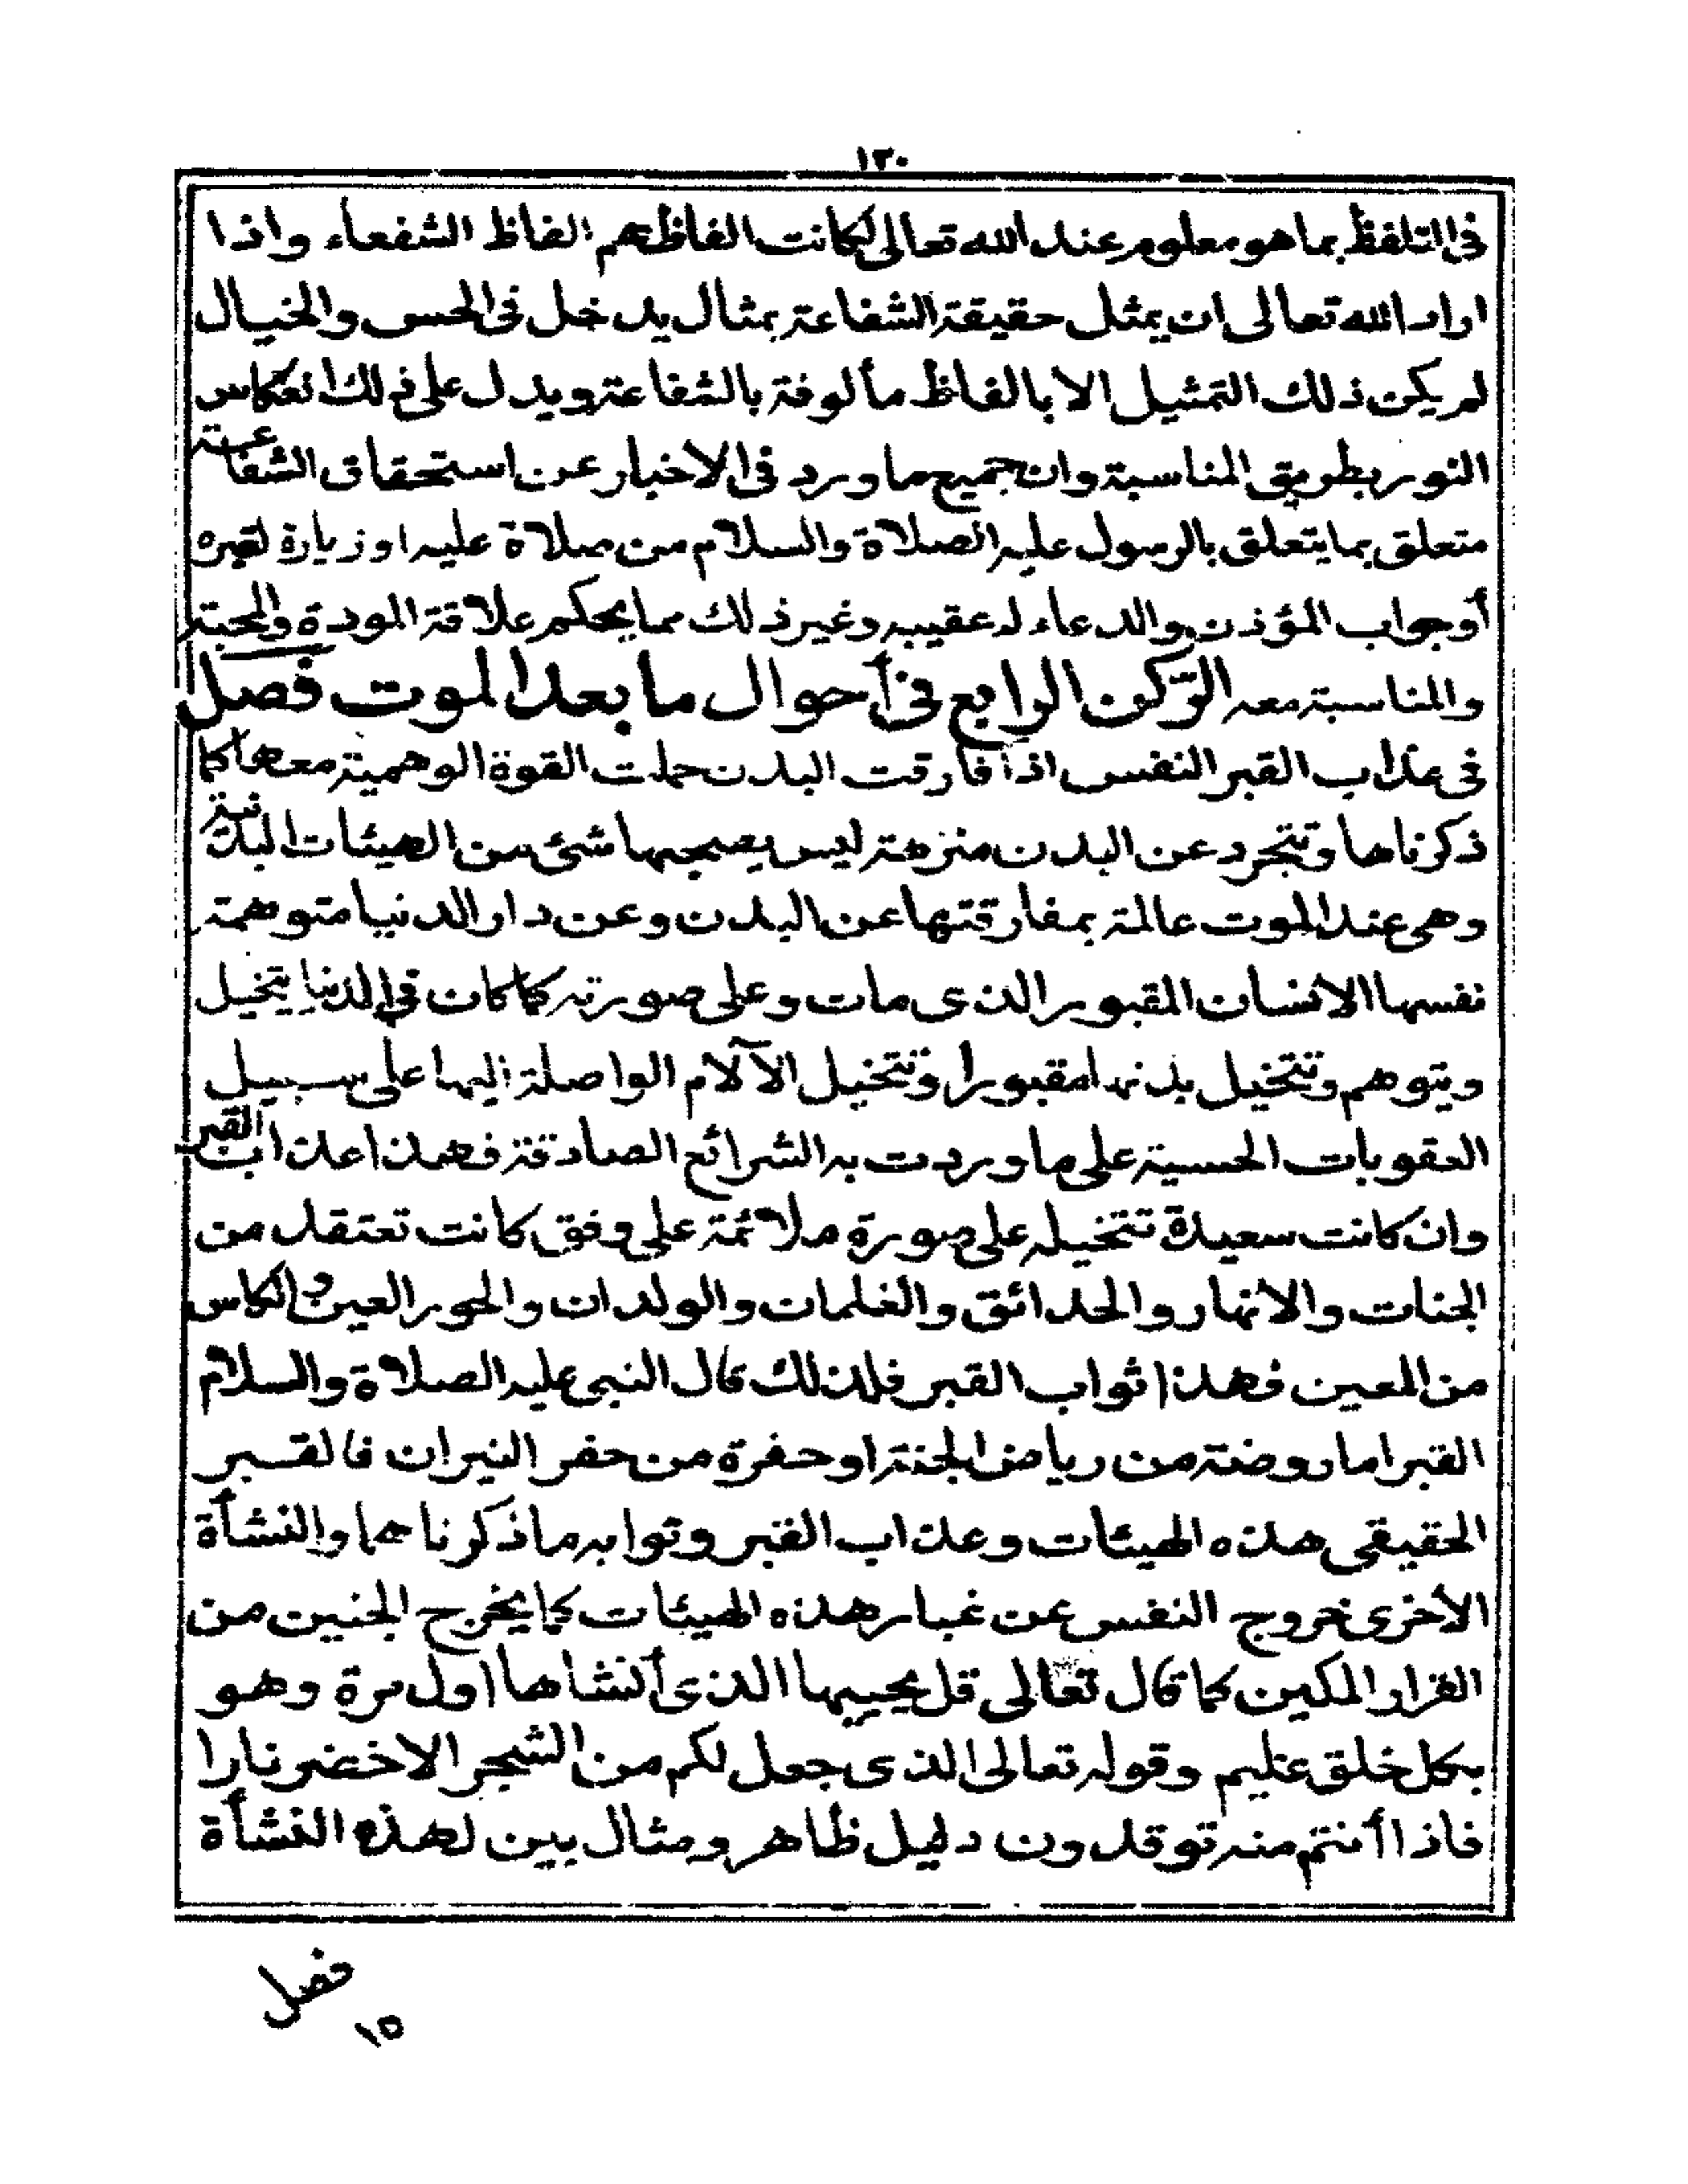 ١٣٠
فى التلفظ بما هو معلوم عند الله تعالى لكانت الفاظهم الفاظ الشفعاء واذا
اراد الله تعالى ان يمثل حقيقة الشفاعة بمثال يدخل فى الحس والخيال
لم يكن ذلك التمثيل الا بالفاظ مألوفة بالشفاعة ويدل على ذلك انعكاس
النور بطريق المناسبة وان جميع ما ورد فى الاخبار عن استحقاق الشفاعة
متعلق بما يتعلق بالرسول عليه الصلاة والسلام من صلاة عليه او زيارة لقبره
أو جواب المؤذن والدعاء له عقيبه وغير ذلك مما يحكم علاقة المودة والمحبة
والمناسبة معه الركن الرابع فى أحوال ما بعد الموت فصل
فى عذاب القبر النفس اذا فارقت البدن حملت القوة الوهمية معها كما
ذكرناها وتتجرد عن البدن منزهة ليس يصحبها شئ من الهيئات البدنية
وهى عند الموت عالمة بمفارقتها عن البدن وعن دار الدنيا متوهمة
نفسها الانسان المقبور الذى مات وعلى صورته كما كان فى الدنيا يتخيل
ويتوهم وتتخيل بدنها مقبورا وتتخيل الآلام الواصلة اليها على سبيل
العقوبات الحسية على ما وردت به الشرائع الصادقة فهذا عذاب القبر
وان كانت سعيدة تتخيله على صورة ملائمة على وفق كانت تعتقد من
الجنات والانهار والحدائق والغلمان والولدان والحور العين والكاس
من المعين فهذا ثواب القبر فلذلك قال النبى عليه الصلاة والسلام
القبر اما روضة من رياض الجنة او حفرة من حفر النيران فالقبر
الحقيقى هذه الهيئات وعذاب القبر وثوابه ما ذكرناهما والنشأة
الأخرى خروج النفس عن غبار هذه الهيئات كما يخرج الجنين من
القرار المكين كما قال تعالى قل يحييها الذى أنشاها اول مرة وهو
بكل خلق عليم وقوله تعالى الذى جعل لكم من الشجر الاخضر نارا
فاذا أنتم منه توقدون دليل ظاهر ومثال بين لهذه النشأة
فصل
١٥